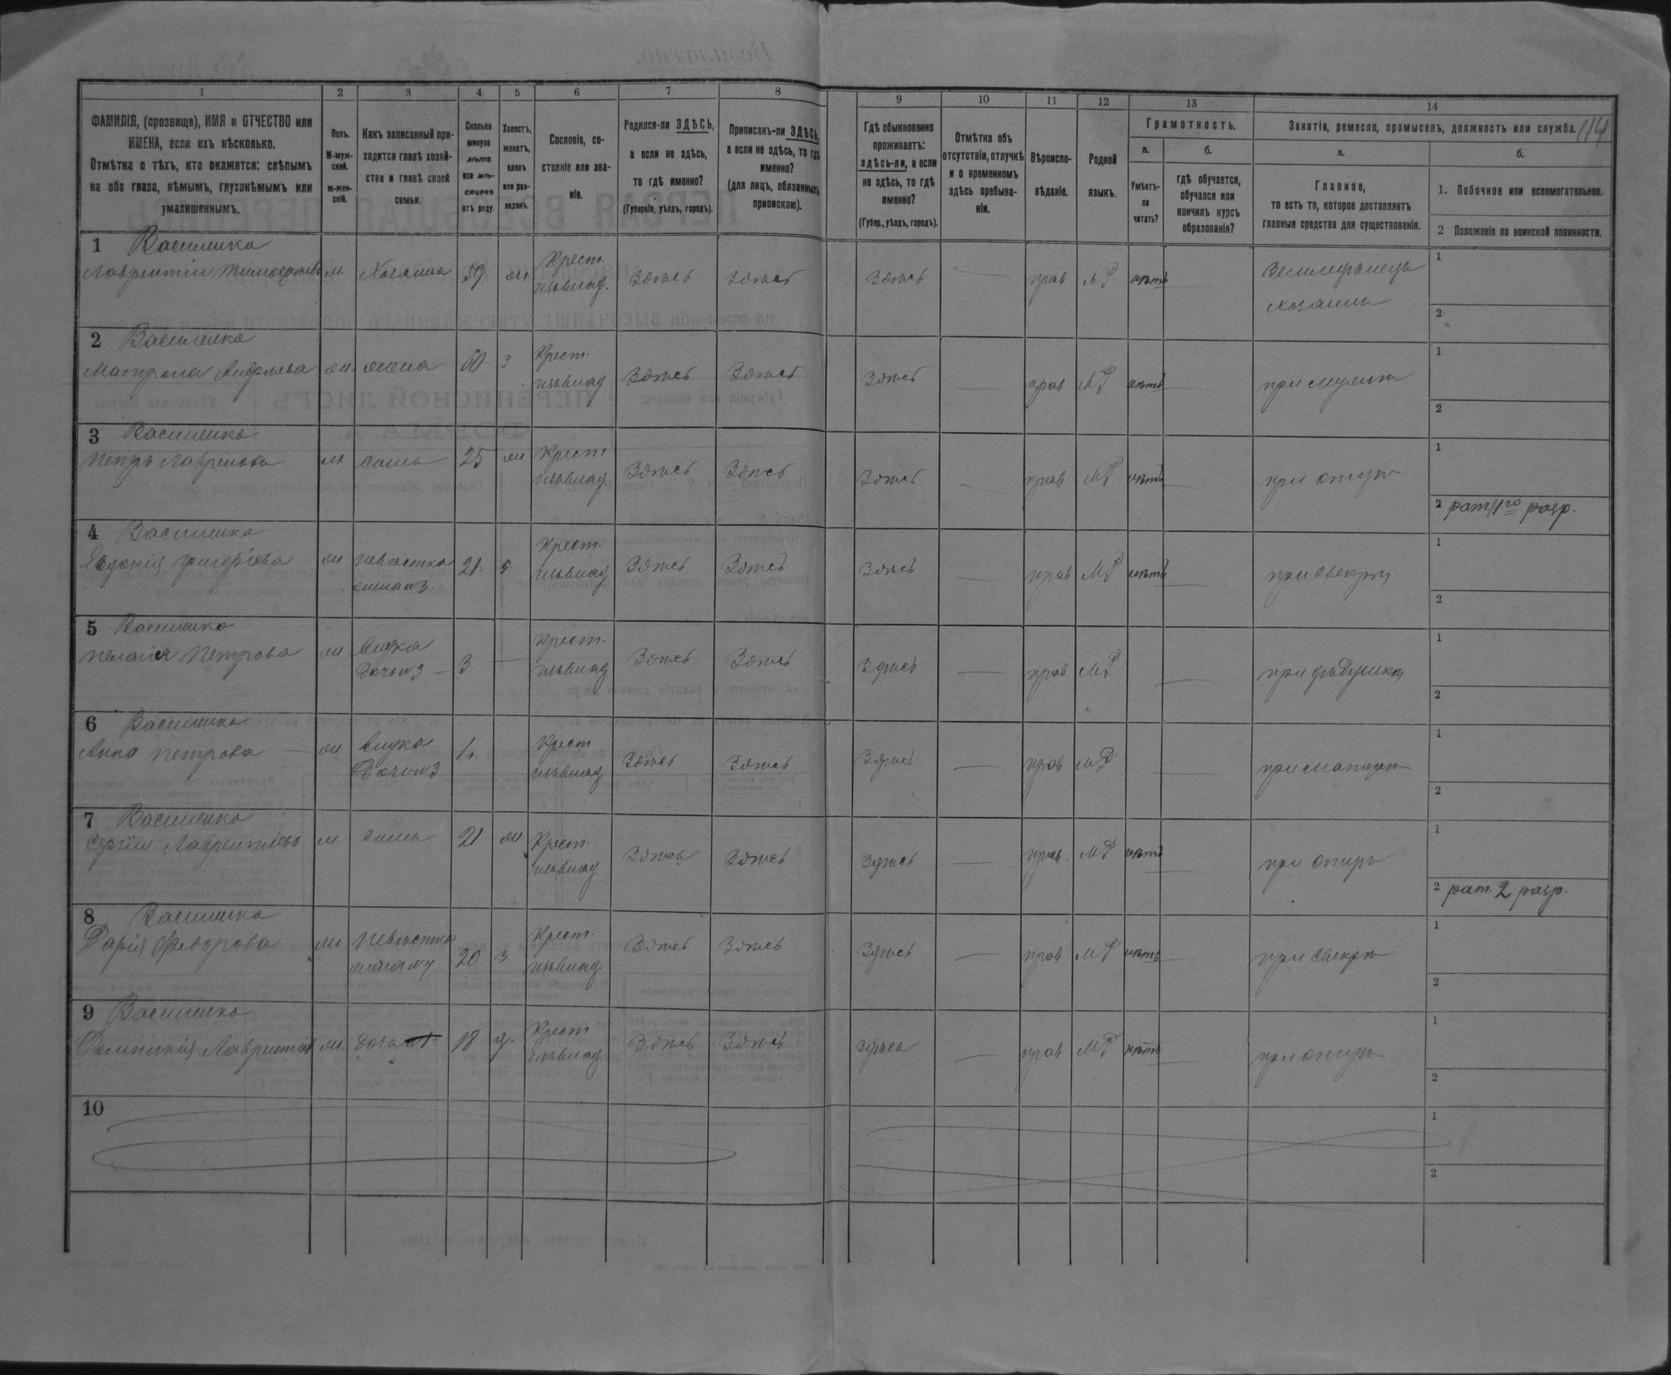 114
1
2
3
4
5
6
7
8
9
10
11
12
13
14
ФАМИЛІЯ, (прозвище), ИМЯ и ОТЧЕСТВО или
ИМЕНА, если ихъ нѣсколько.
Отмѣтка о тѣхъ, кто окажется: слѣпымъ
на оба глаза, нѣмымъ, глухонѣмымъ или
умалишеннымъ.
Полъ.
М-муж-
ской.
Ж-жен-
скій.
Какъ записанный при-
ходится главѣ хозяй-
ства и главѣ своей
семьи.
Сколько
минуло
лѣтъ
или мѣ-
сяцевъ
отъ роду.
Холостъ,
женатъ,
вдовъ
или раз-
веденъ.
Сословіе, со-
стояніе или зва-
ніе.
Родился-ли ЗДѢСЬ,
а если не здѣсь,
то гдѣ именно?
(Губернія, уѣздъ, городъ).
Приписанъ-ли ЗДѢСЬ,
а если не здѣсь, то гдѣ
именно?
(для лицъ, обязанныхъ
припискою).
Гдѣ обыкновенно
проживаетъ:
здѣсь-ли, а если
не здѣсь, то гдѣ
именно?
(Губер., уѣздъ, городъ).
Отмѣтка объ
отсутствіи, отлучкѣ
и о временномъ
здѣсь пребыва-
ніи.
Вѣроиспо-
вѣданіе.
Родной
языкъ.
Грамотность.
а.
Умѣетъ-
ли
читать?
б.
Гдѣ обучается,
обучался или
кончилъ курсъ
образованія?
Занятіе, ремесло, промыселъ, должность или служба.
а.
Главное,
то есть то, которое доставляетъ
главныя средства для существованія.
б.
1. Побочное или вспомогательное.
2 Положеніе по воинской повинности.
1 Василенко
Лаврентій м Хозяинъ 59 ж Крест. Здѣсь Здѣсь Здѣсь — прав МР нѣтъ — Земледѣлецъ 1
хозяинъ
2
2 Василенко
Матрона ж жена 60 з Крест. Здѣсь Здѣсь Здѣсь — прав МР нѣтъ — при мужѣ 1
2
3 Василенко
Петръ м сынъ 25 ж Крест Здѣсь Здѣсь Здѣсь — прав МР нѣтъ — при отцѣ 1
2 рат. 1го разр.
4 Василенко
Евдокія Григорьева ж невѣстка 21 з Крест. Здѣсь Здѣсь Здѣсь — прав МР нѣтъ — при свекрѣ 1
жена 3
2
5 Василенко
Пелагія Петрова ж внука 3 — Крест. Здѣсь Здѣсь Здѣсь — прав МР — при дѣдушкѣ 1
дочь 3
2
6 Василенко
Анна Петрова — ж внука Крест Здѣсь Здѣсь Здѣсь — прав МР — при матери 1
дочь 3
2
7 Василенко
Сергій м сынъ 21 ж Крест Здѣсь Здѣсь Здѣсь — прав. МР нѣтъ — при отцѣ 1
2 рат. 2 разр.
8 Василенко
Дарія Федорова ж невѣстка 20 з Крест. Здѣсь Здѣсь Здѣсь — прав МР нѣтъ — при свекрѣ 1
2
9 Василенко
ж дочь 18 д. Крест Здѣсь Здѣсь Здѣсь — прав МР нѣтъ — при отцѣ 1
2
10
1
2